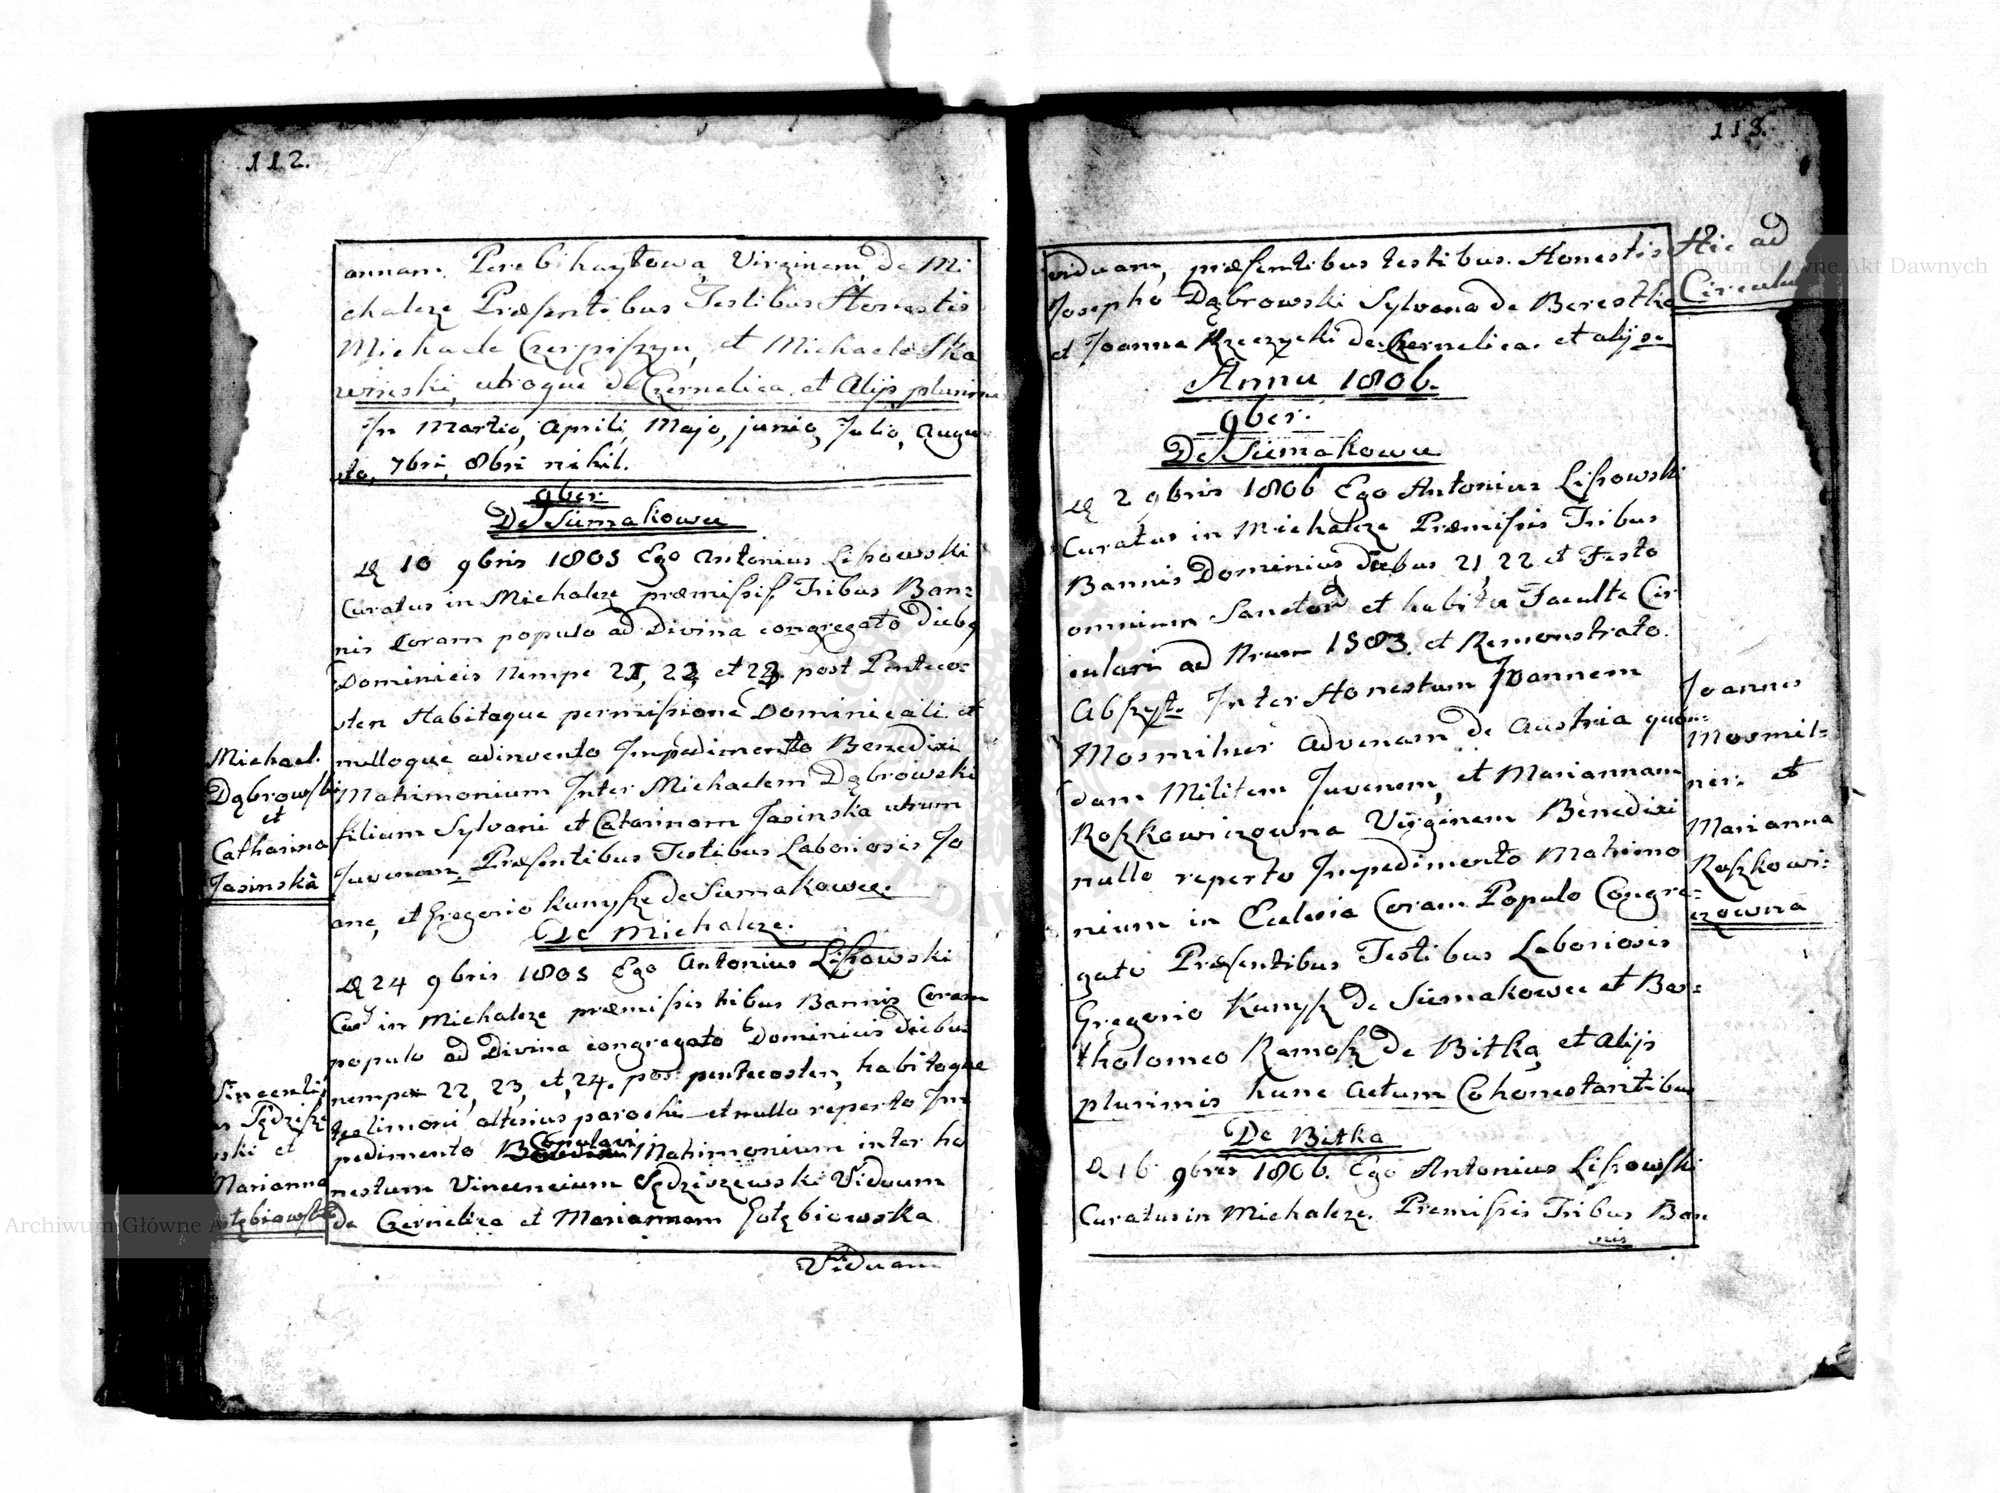 112.
annam Perebihaytowa Virginem, de Mi
chalcze Præsentibus Testibus Honestis
Michaele Czerpiszyn, et Michaelo Ska
winski, utroque de Czernelica et Alijs plurimis
In Martio, Aprili, Majo, junio, Julio, Augu
sto, 7bri, 8bri nihil.
9ber.
De Siemakowce
D 10 9bris 1805 Ego Antonius Lissowski
Curatus in Michalcze præmissis Tribus Ban=
nis Coram populo ad Divina congregato Diebq
Dominicis Nempe 21, 22, et 23. post Penteco=
sten Habitaque permissione Dominicali et
nulloque adinvento Impedimento Benedixi
Matrimonium Inter Michaelem Dąbrowski
filium Sylvani et Catarinam Jasinska utrum
Juvenem Præsentibus Testibus Laboriosis Jo
ane, et Gregorio Kunysz de Siemakowce.
Michael
Dąbrowski
et
Catharina
Jasinska
De Michalcze.
D 24 9bris 1805 Ego Antonius Lissowski
Curt in Michalcze præmissis tribus Bannis Coram
populo ad Divina congregato Dominicis diebus
nempe 22, 23, et 24. post pentecosten, habitoque
testimoni alterius parochi et nullo reperto Im
pedimento Copulavi Matrimonium inter ho
nestum Vincencium Sędziszewski Viduum
de Czernelica et Mariannam Gołębiowska
Viduam
Vincenti
us Sędzisze
wski et
Marianna
Gołębiowska
113.
viduam, præsentibus testibus Honestis
Josepho Dąbrowski Sylvano de Berestke
et Joanne Rzeczycki de Czernelica. et alijs.
Hic ad
Circulum
Anno 1806.
9ber.
De Siemakowce
D 2 9bris 1806 Ego Antonius Lissowski
Curatus in Michalcze Præmissis Tribus
Bannis Dominicis diebus 21, 22 et Festo
omnium Sanctor et habita Faculte Cir
culari ad Nrum 1583. et Remonstrato
Abszyt. Inter Honestum Joannem
Mosmilner Advenam de Austria quon=
dam Militem Juvenem, et Mariannam
Roszkowiczowna Virginem Benedixi
nullo reperto Impedimento Matrimo
nium in Eclesia Coram Populo Congre=
gato Præsentibus Testibus Laboriosis
Gregorio Kunysz de Siemakowce et Bar=
tholomeo Ramosz de Bitka, et alijs
plurimis hunc actum Cohonestantibus
Joannes
Mosmil=
ner et
Marianna
Roszkowi=
czowna
De Bitka
D 16 9bris 1806. Ego Antonius Lissowski
Curatus in Michalcze Premissis Tribus Ban
nis